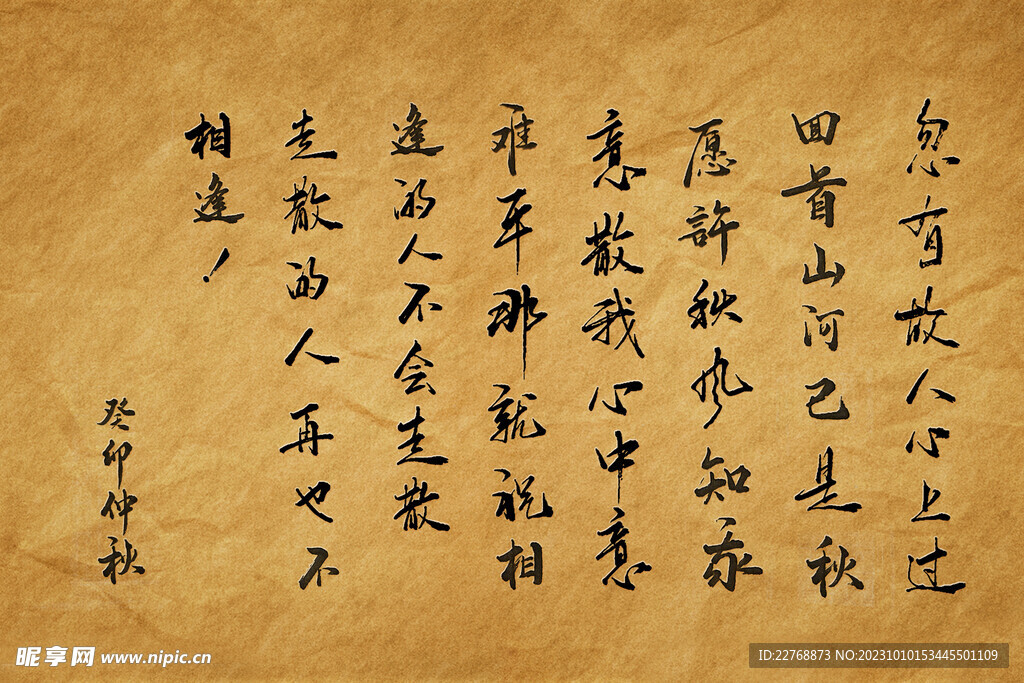 忽有故人心上过
回首山河已是秋
愿許秋风知我
意散我心中意
难平那就祝相
逢的人不会走散
走散的人再也不
相逢！
癸卯仲秋
昵享网 www.nipic.cn
ID:22768873 NO:20231010153445501109